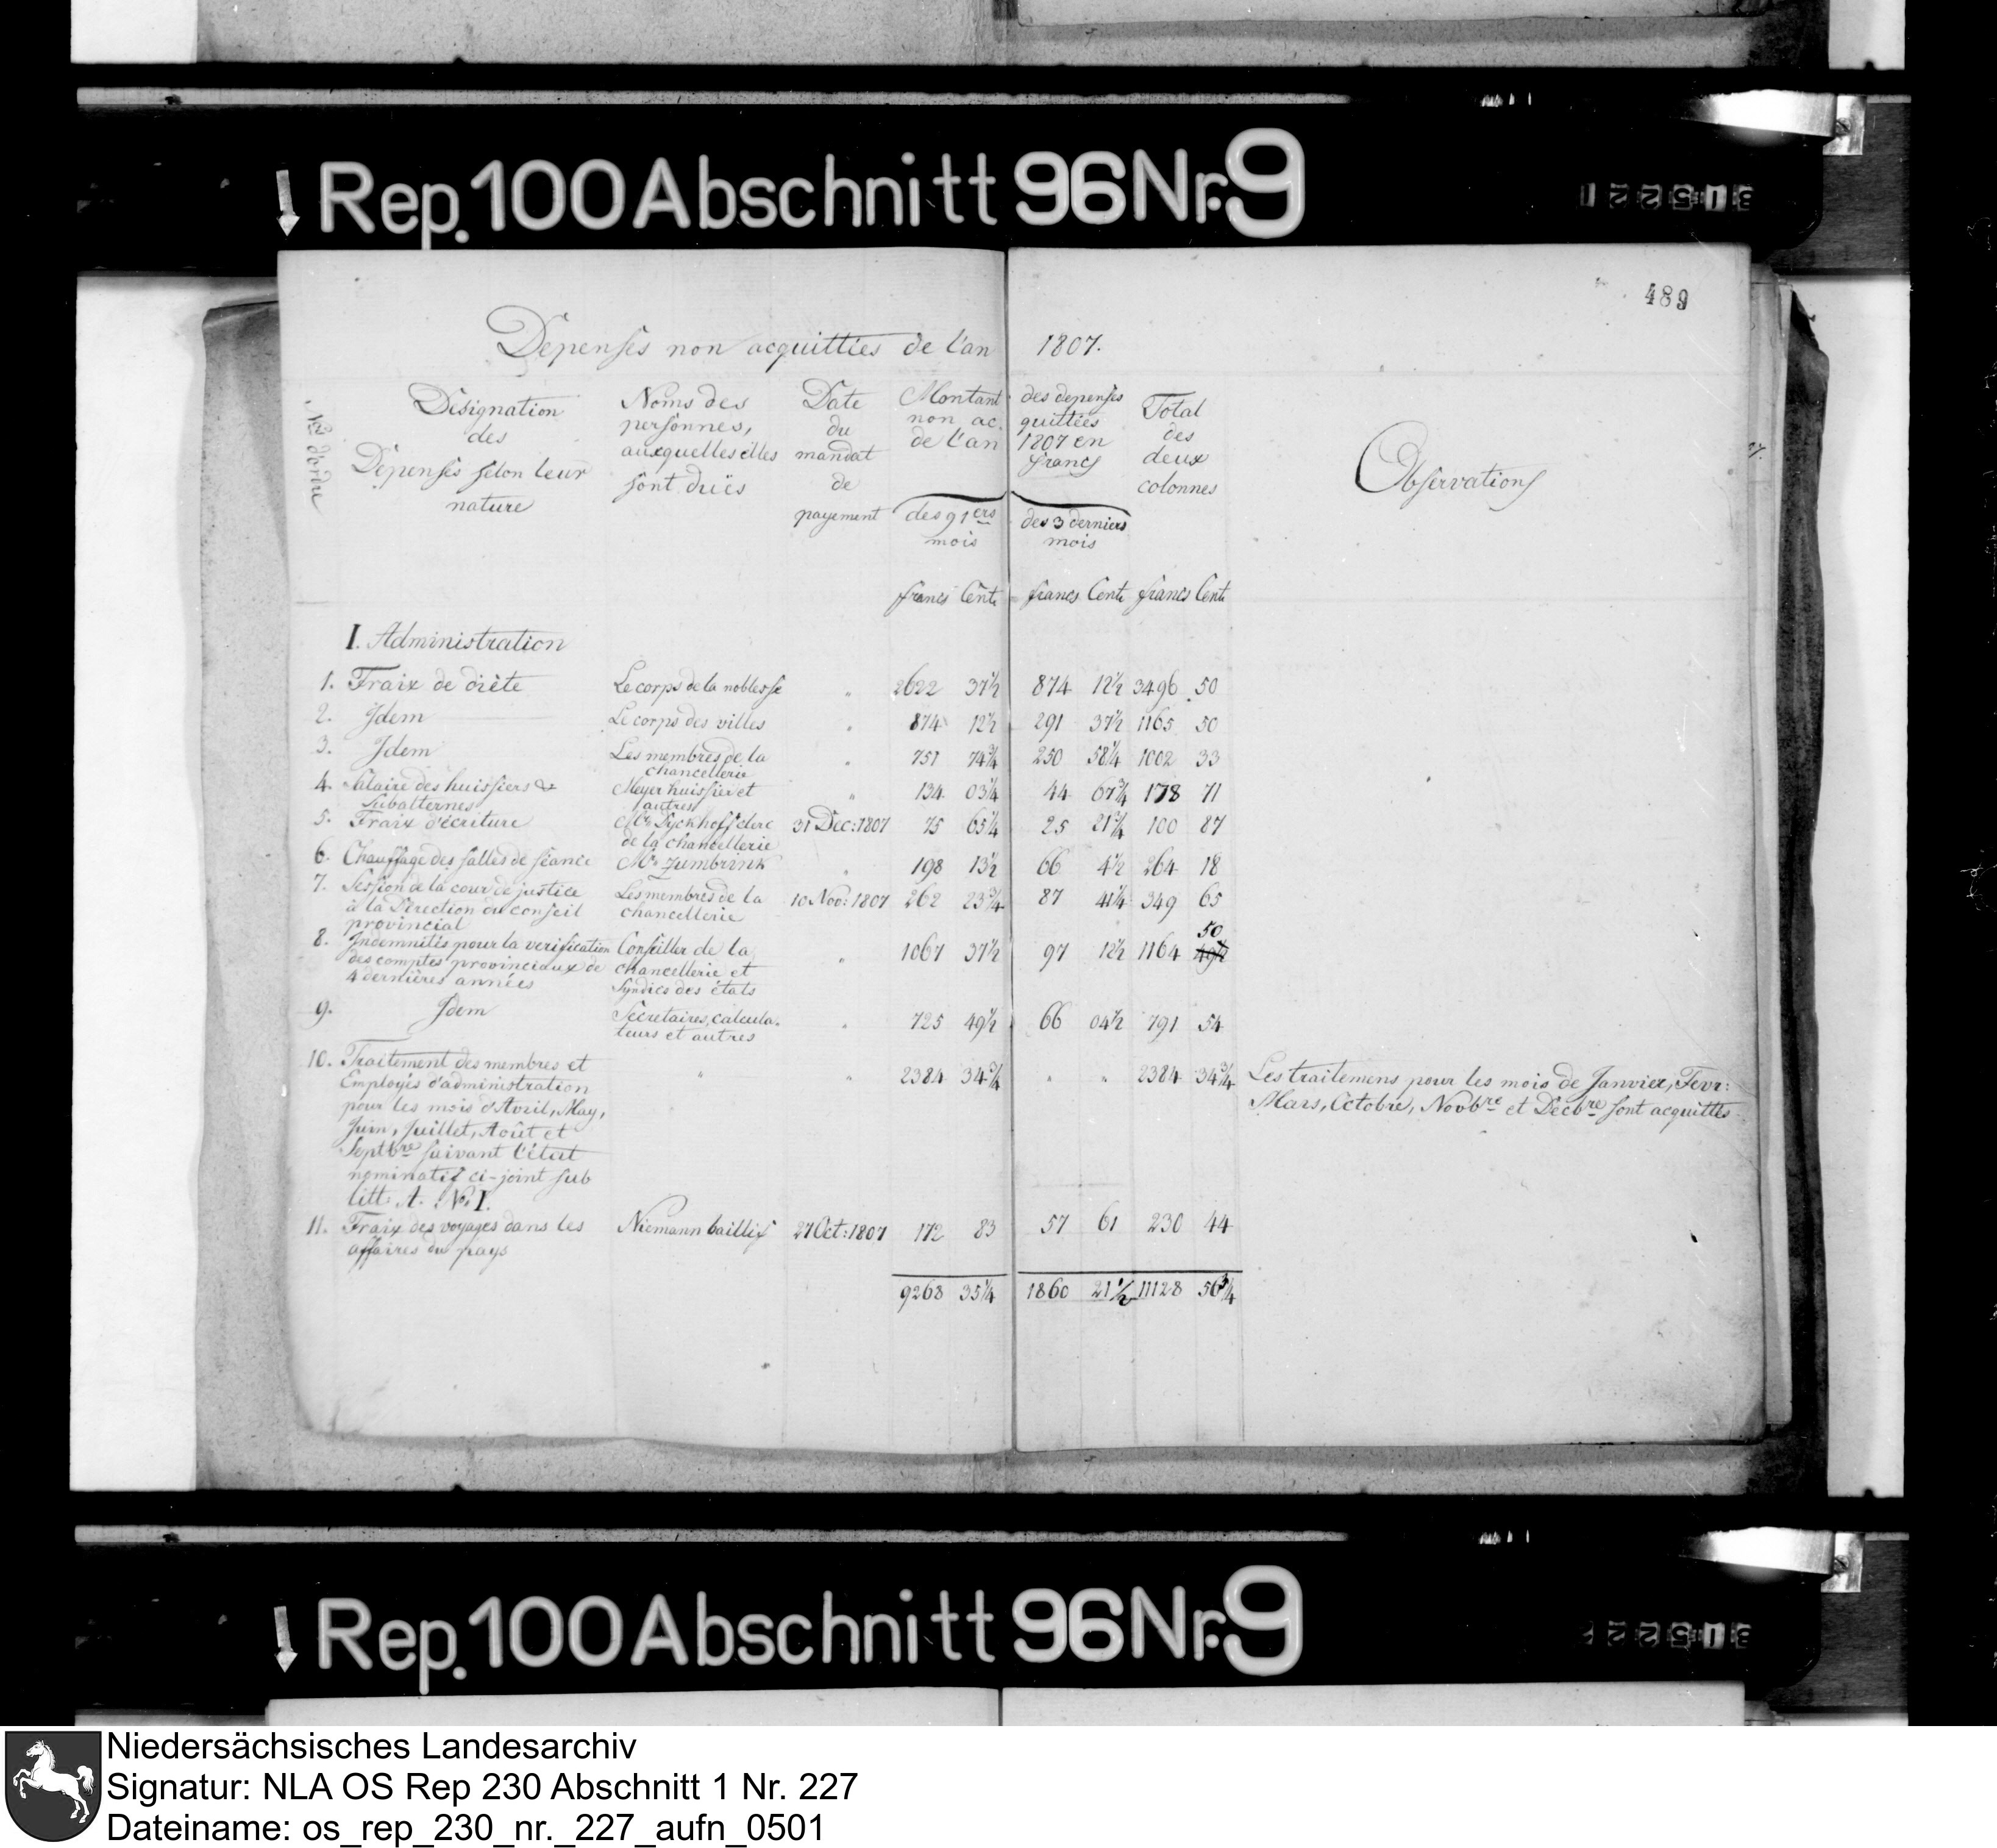 Rep. 100 Abschnitt 96 Nr. 9
489
Depenses non acquittées de l'an 1807.
Nro d'ordre
Désignation des Dépenses selon leur nature
Noms des personnes, auxquelles elles sont duës
Date du mandat de payement
Montant des depenses non acquittées de l'an 1807 en francs
des 9 1ers mois
des 3 derniers mois
Total des deux colonnes
Observations
francs Cent francs Cent francs Cent
I. Administration
1. Fraix de diète Le corps de la noblesse " 2622 37½ 874 12½ 3496 50
2. Jdem Le corps des villes " 874 12½ 291 37½ 1165 50
3. Jdem Les membres de la " 751 74¾ 250 58¼ 1002 33
chancellerie
4. Salaire des huissiers & Meyer huissier et " 134 03¼ 44 67¾ 178 71
subalternes autres
5. Fraix d'écriture Mr. Dyckhoff clerc 31 Dec: 1807 75 65¼ 25 21¾ 100 87
de la chancellerie
6. Chauffage des salles de séance Mr. Zumbrink " 198 13½ 66 4½ 264 18
7. Session de la cour de justice Les membres de la 10 Nov: 1807 262 23¾ 87 41¼ 349 65
à la Direction du conseil chancellerie
provincial
8. Indemnités pour la verification Conseiller de la " 1067 37½ 97 12½ 1164 50
des comptes provinciaux de chancellerie et 49½
4 dernières années Syndics des états
9. Jdem Secretaires, calcula- " 725 49½ 66 04½ 791 54
teurs et autres
10. Traitement des membres et " " 2384 34¾ " " 2384 34¾ Les traitemens pour les mois de Janvier, Fevr:
Employés d'administration Mars, Octobre, Novbre et Decbre sont acquittés
pour les mois d'Avril, May,
Juin, Juillet, Août et
Septbre suivant l'état
nominatif ci-joint sub
litt: A. No. I.
11. Fraix des voyages dans les Niemann baillif 27 Oct: 1807 172 83 57 61 230 44
affaires du pays
9268 35¼ 1860 21½ 11128 56¾
Rep. 100 Abschnitt 96 Nr. 9
Niedersächsisches Landesarchiv
Signatur: NLA OS Rep 230 Abschnitt 1 Nr. 227
Dateiname: os_rep_230_nr._227_aufn_0501